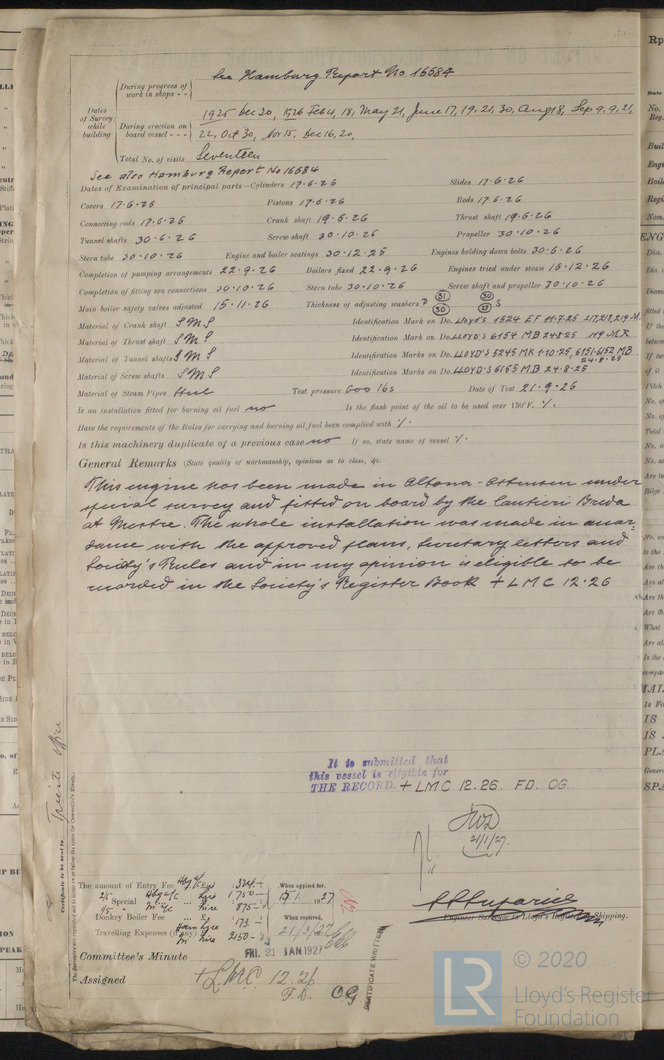 See Hamburg Report No 16584
During progress of work in shops - -
Dates of Survey while building
During erection on board vessel - - -
1925 Dec 20, 1926 Feb 4, 18, May 21, June 17, 19, 21, 30, Aug 18, Sep 9, 9, 21,
22, Oct 30, Nov 15, Dec 16, 20,
Total No. of visits Seventeen
See also Hamburg Report No 16584
Dates of Examination of principal parts—Cylinders 17·6·26 Slides 17·6·26
Covers 17·6·26 Pistons 17·6·26 Rods 17·6·26
Connecting rods 17·6·26 Crank shaft 19·6·26 Thrust shaft 19·6·26
Tunnel shafts 30·6·26 Screw shaft 30·10·26 Propeller 30·10·26
Stern tube 30·10·26 Engine and boiler seatings 30·12·25 Engines holding down bolts 30·6·26
Completion of pumping arrangements 22·9·26 Boilers fixed 22·9·26 Engines tried under steam 15·12·26
Completion of fitting sea connections 30·10·26 Stern tube 30·10·26 Screw shaft and propeller 30·10·26
Main boiler safety valves adjusted 15·11·26 Thickness of adjusting washers P 31 30 S
Material of Crank shaft S M S Identification Mark on Do. Lloyd's 1524 EF 11·9·25
Material of Thrust shaft S M S Identification Mark on Do. LLOYD'S 6154 MB 24·8·25
Material of Tunnel shafts S M S Identification Marks on Do. LLOYD'S 5245 MR 1·10·25, 6151-6152 MB
24·8·25
Material of Screw shafts S M S Identification Marks on Do. LLOYD'S 6155 MB 24·8·25
Material of Steam Pipes Test pressure 600 lbs Date of Test 21·9·26
Is an installation fitted for burning oil fuel no Is the flash point of the oil to be used over 150°F. ·/.
Have the requirements of the Rules for carrying and burning oil fuel been complied with ·/.
Is this machinery duplicate of a previous case no If so, state name of vessel ·/.
General Remarks (State quality of workmanship, opinions as to class, &c.
This engine has been made in Altona-Ottensen under
special survey and fitted on board by the Cantieri Breda
at Mestre. The whole installation was made in accor=
dance with the approved plans, Secretary letters and
Society's Rules and in my opinion is eligible to be
recorded in the Society's Register Book + LMC 12·26
It is submitted that
this vessel is eligible for
THE RECORD. + LMC 12.26. FD. OG.
21/1/27.
Certificate to be sent to Trieste office
The amount of Entry Fee
Special
Donkey Boiler Fee
Travelling Expenses (if any)
When applied for,
1927
When received,
Engineer Surveyor to Lloyd's Register of Shipping.
Committee's Minute FRI. 21 JAN 1927
Assigned + LMC 12.26
F.D. OG
CERTIFICATE WRITTEN
LR © 2020
Lloyd's Register
Foundation